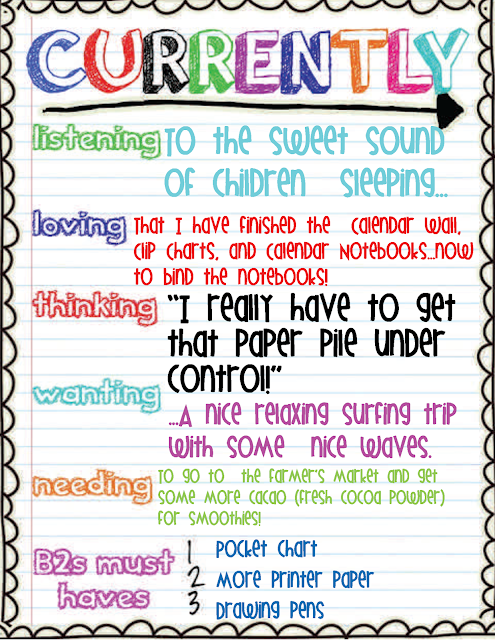 CURRENTLY
listening To the sweet sound
of children sleeping...
loving That I have finished the calendar wall,
clip charts, and calendar notebooks...now
to bind the notebooks!
thinking "I really have to get
that paper pile under
control!"
wanting
...A nice relaxing surfing trip
with some nice waves.
needing To go to the farmer's market and get
some more cacao (fresh cocoa powder)
for smoothies!
B2s must haves
1 Pocket chart
2 More printer paper
3 Drawing pens